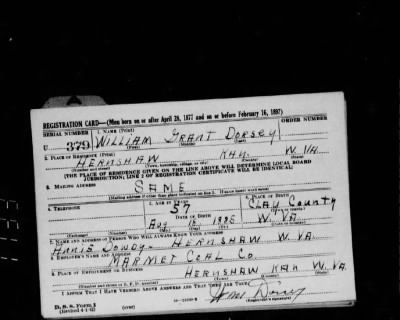 REGISTRATION CARD—(Men born on or after April 28, 1877 and on or before February 16, 1897)
SERIAL NUMBER 1. NAME (Print) ORDER NUMBER
U 379 WILLIAM GRANT DORSEY
2. PLACE OF RESIDENCE (Print)
HERNSHAW KAN. W. VA.
(Town, township, village, or city) (County) (State)
[THE PLACE OF RESIDENCE GIVEN ON THE LINE ABOVE WILL DETERMINE LOCAL BOARD
JURISDICTION; LINE 2 OF REGISTRATION CERTIFICATE WILL BE IDENTICAL]
3. MAILING ADDRESS
SAME
4. TELEPHONE 5. AGE IN YEARS 6. PLACE OF BIRTH
57 CLAY COUNTY
DATE OF BIRTH
AUG 1885 W. VA.
7. NAME AND ADDRESS OF PERSON WHO WILL ALWAYS KNOW YOUR ADDRESS
HERNSHAW W. VA.
8. EMPLOYER'S NAME AND ADDRESS
MARMET COAL CO.
9. PLACE OF EMPLOYMENT OR BUSINESS
HERNSHAW, KAN W. VA.
I AFFIRM THAT I HAVE VERIFIED ABOVE ANSWERS AND THAT THEY ARE TRUE.
D. S. S. Form 1
(Revised 4-1-42) (over) (Registrant's signature)